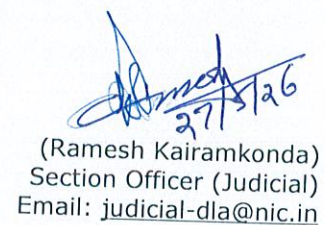 Ramesh
27/5/26
(Ramesh Kairamkonda)
Section Officer (Judicial)
Email: judicial-dla@nic.in